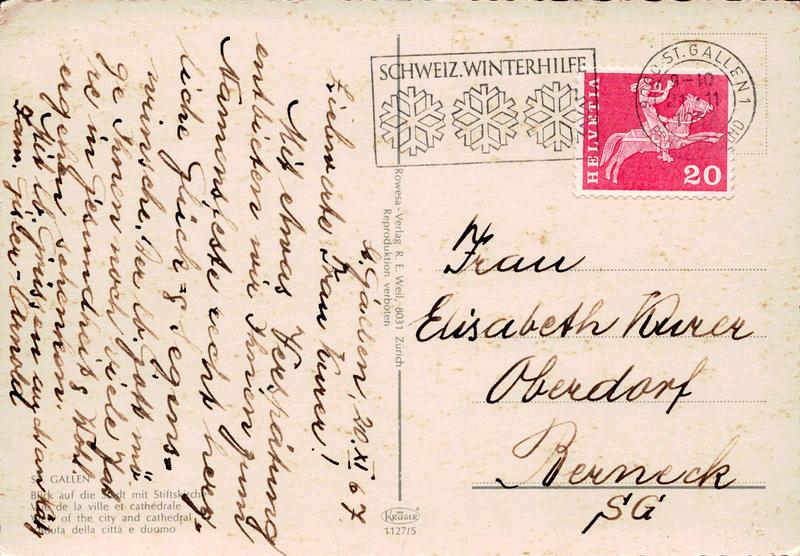 SCHWEIZ. WINTERHILFE
ST. GALLEN 1
9-10
HELVETIA
20
St. Gallen, 20. XI 67.
Liebwerte Frau Kurer!
Mit etwas Verspätung
entbieten wir Ihnen zum
Namensfeste recht herz-
liche Glück- & Segens=
wünsche. Der lb. Gott mö
ge Ihnen noch viele Jah
re in Gesundheit & Wohl
ergehen schenken.
Mit lb. Grüssen auch an Käthy
Fam. Gisler-Arnold
Rowesa-Verlag R. E. Weil, 8031 Zürich
Reproduktion verboten
Frau
Elisabeth Kurer
Oberdorf
Berneck
SG
ST. GALLEN
Blick auf die Stadt mit Stiftskirche
de la ville et cathédrale
of the city and cathedral
della città e duomo
KRÜGER
1127/5